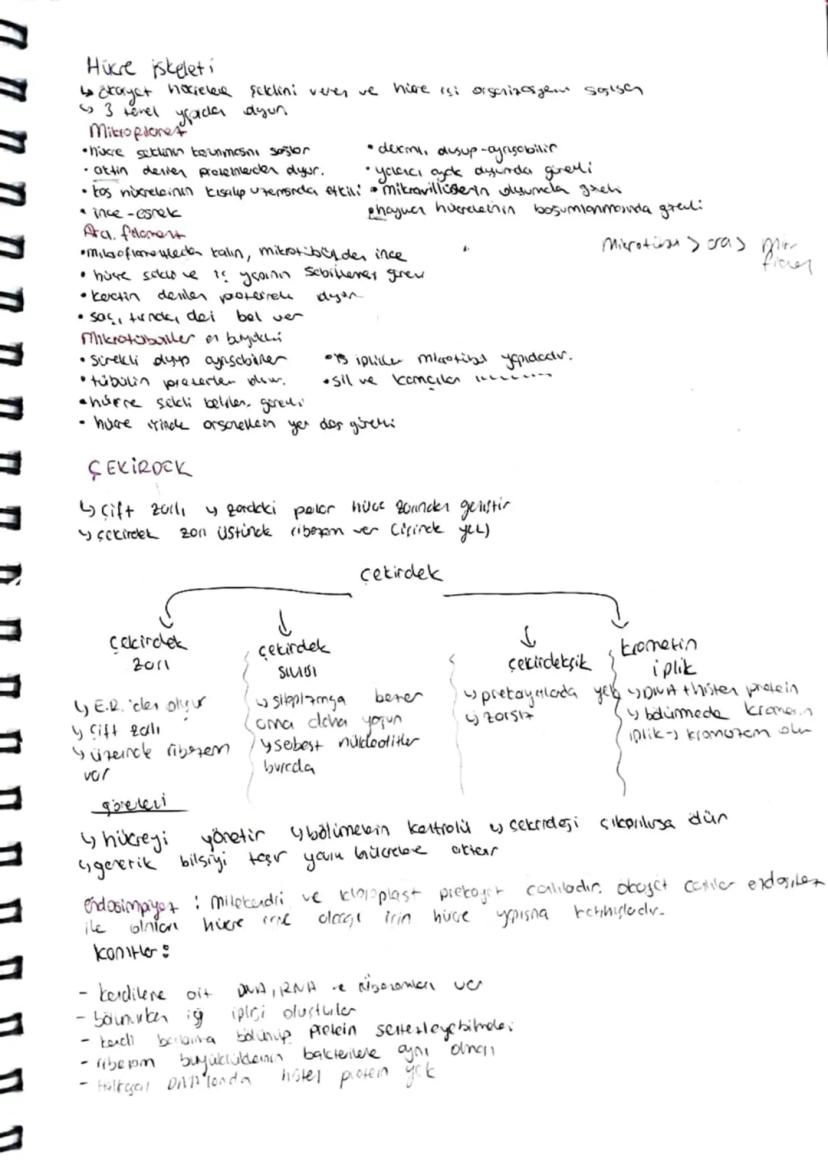 Hücre iskeleti
↳ ökaryot hücrelere şeklini veren ve hücre içi organizasyonu sağlayan
↳ 3 temel yapıdan oluşur
Mikrofilament
• hücre şeklinin korunmasını sağlar
• aktin denilen proteinlerden oluşur.
• kas hücrelerinin kısalıp uzamasında etkili
• ince-esnek
• devamlı oluşup-ayrışabilir
• yalancı ayak oluşumunda görevli
• mikrovillüslerin oluşumunda görevli
• hayvan hücrelerinin boğumlanmasında görevli
Ara filament
• mikrofilamentlerden kalın, mikrotübülden ince
• hücre şekli ve iç yapının görev
• keratin denilen proteinden oluşan
• saç, tırnak, deri bol var
Mikrotübül > ara > mikro filament
Mikrotübüller en büyükleri
• sürekli oluşup ayrışabilirler
• tübülin proteinlerden oluşur.
• hücre şekli belirlen. görevli
• hücre içinde organellerin yer değ görevli
• iğ iplikler mikrotübül yapıdadır.
• sil ve kamçılar
ÇEKİRDEK
↳ çift zarlı ↳ zardaki porlar hücre zarından geniştir
↳ çekirdek zarı üstünde ribozom var (içinde yok)
çekirdek
çekirdek zarı
↳ E.R.'den oluşur
↳ çift zarlı
↳ üzerinde ribozom
var
çekirdek
sıvısı
↳ sitoplazmaya benzer
ama daha yoğun
↳ serbest nükleotitler
burada
çekirdekçik
↳ prokaryotlarda yok
↳ zarsız
kromatin
iplik
↳ DNA + histon protein
↳ bölünmede kromatin
iplik → kromozom olur
görevleri
↳ hücreyi yönetir ↳ bölünmenin kontrolü ↳ çekirdeği çıkarılırsa ölür
↳ genetik bilgiyi taşır yavru hücrelere aktarır
endosimbiyoz : mitokondri ve kloroplast prokaryot canlılardır. ökaryot canlılar endositoz
ile onları hücre içine alarak hücre yapısına katmışlardır.
kanıtlar :
- kendilerine ait DNA, RNA ve Ribozomları var
- bölünürken iğ ipliği oluştururlar
- kendi başlarına bölünüp protein sentezleyebilmeleri
- ribozom büyüklüklerinin bakterilerle aynı olması
- Halkasal DNA'larında histon protein yok